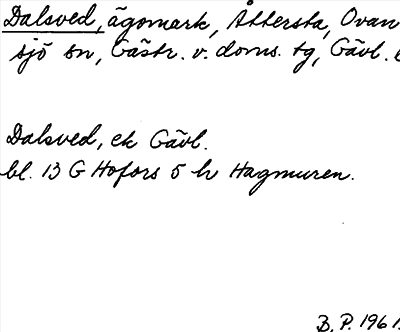 Dalsved, ägomark, Åttersta, Ovan
sjö sn, Gästr. v. doms. tg, Gävl. l
Dalsved, ek Gävl.
bl. 13 G Hofors 5 h Hagmuren.
B. P. 1961.